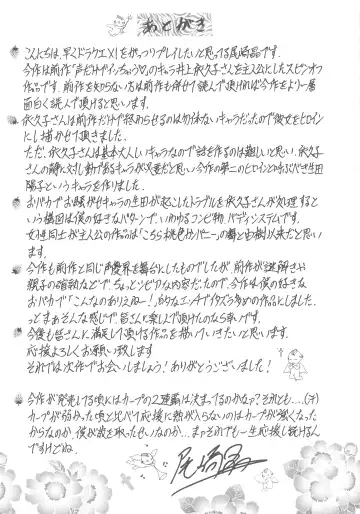 あとがき
こんにちは、早くドラクエXIをがっつりプレイしたいと思ってる尾崎晶です。
今作は前作「声だけでイッちゃう♡」のキャラ井上依久子さんを主人公にしたスピンオフ
作品です。前作を知らない方は前作も併せて読んで頂ければ今作をより一層
面白く読んで頂けると思います。
依久子さんは前作だけで終わらせるのは勿体ないキャラだったので彼女をヒロイン
にし描かせて頂きました。
ただ、依久子さんは基本大人しいキャラなので話を作るのは難しいと思い、依久子
さんの静に対し動であるキャラが必要だと思い今作の第二のヒロインとも呼ぶべき生田
陽子というキャラを作りました。
おバカでお騒がせキャラの生田が起こしたトラブルを依久子さんが処理すると
いう構図は僕の好きなパターンで、いわゆるコンビ物、バディシステムです。
女性同士が主人公の作品は「こちら桃色カンパニー」の舞と由樹以来だと思い
ます。
今作も前作と同じ声優界を舞台にしたものでしたが、前作が謎解きや
親子の確執などでちょっとシビアな内容だったので、今作は僕の好きな
おバカで「こんなのありえねー!」的なエッチでイタズラ多めの作品にしました。
っとまぁそんな感じで皆さんに楽しんで頂けたのなら幸いです。
今後も皆さんに満足して頂ける作品を描いていきたいと思います。
応援よろしくお願い致します
それでは次作でお会いしましょう!ありがとうございました!
今作が発売してる頃にはカープの2連覇は決まってるのかなァ?それとも・・・・(汗)
カープが弱かった頃と比べて応援に熱が入らないのはカープが強くなった
からなのか、僕が歳を取ったせいなのか・・・まァそれでも一生応援し続けるん
ですけどね。
尾崎晶